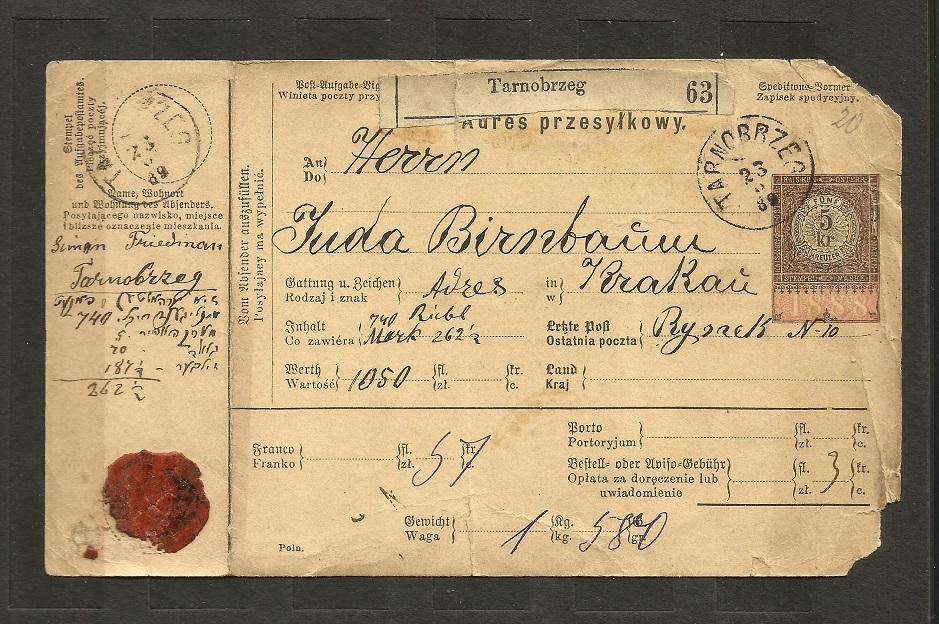 Stempel
des Aufgabepostamtes.
Pieczęć poczty
przyjmującej.
RZEG
23
89
Name, Wohnort
und Wohnung des Absenders.
Posyłającego nazwisko, miejsce
i bliższe oznaczenie mieszkania.
Simon Friedman
Tarnobrzeg
740
5
20
187½
262½
Vom Absender auszufüllen.
Posyłający ma wypełnić.
Post-Aufgabe-Vig
Winieta poczty przy
Tarnobrzeg 63
Speditions-Vormer
Zapisek spedycyjny.
20
Adres przesyłkowy.
TARNOBRZEG
23
89
An
Do
Herrn
Juda Birnbaum
KAIS. KÖ ÖSTERR
5
kr
STEMPEL MARKE
1888
Gattung u. Zeichen
Rodzaj i znak
Adres
in
w
Krakau
Inhalt
Co zawiéra
740 Rubl
Mark 262½
Letzte Post
Ostatnia poczta
Rynek N-10
Werth
Wartość
1050
fl. kr.
zł. c.
Land
Kraj
Franco
Franko
fl. kr.
zł. c.
57
Porto
Portoryjum
fl. kr.
zł. c.
Bestell- oder Aviso-Gebühr
Opłata za doręczenie lub
uwiadomienie
fl. kr.
zł. c.
3
Gewicht
Waga
1
Kg.
kg.
580
gr.
Poln.